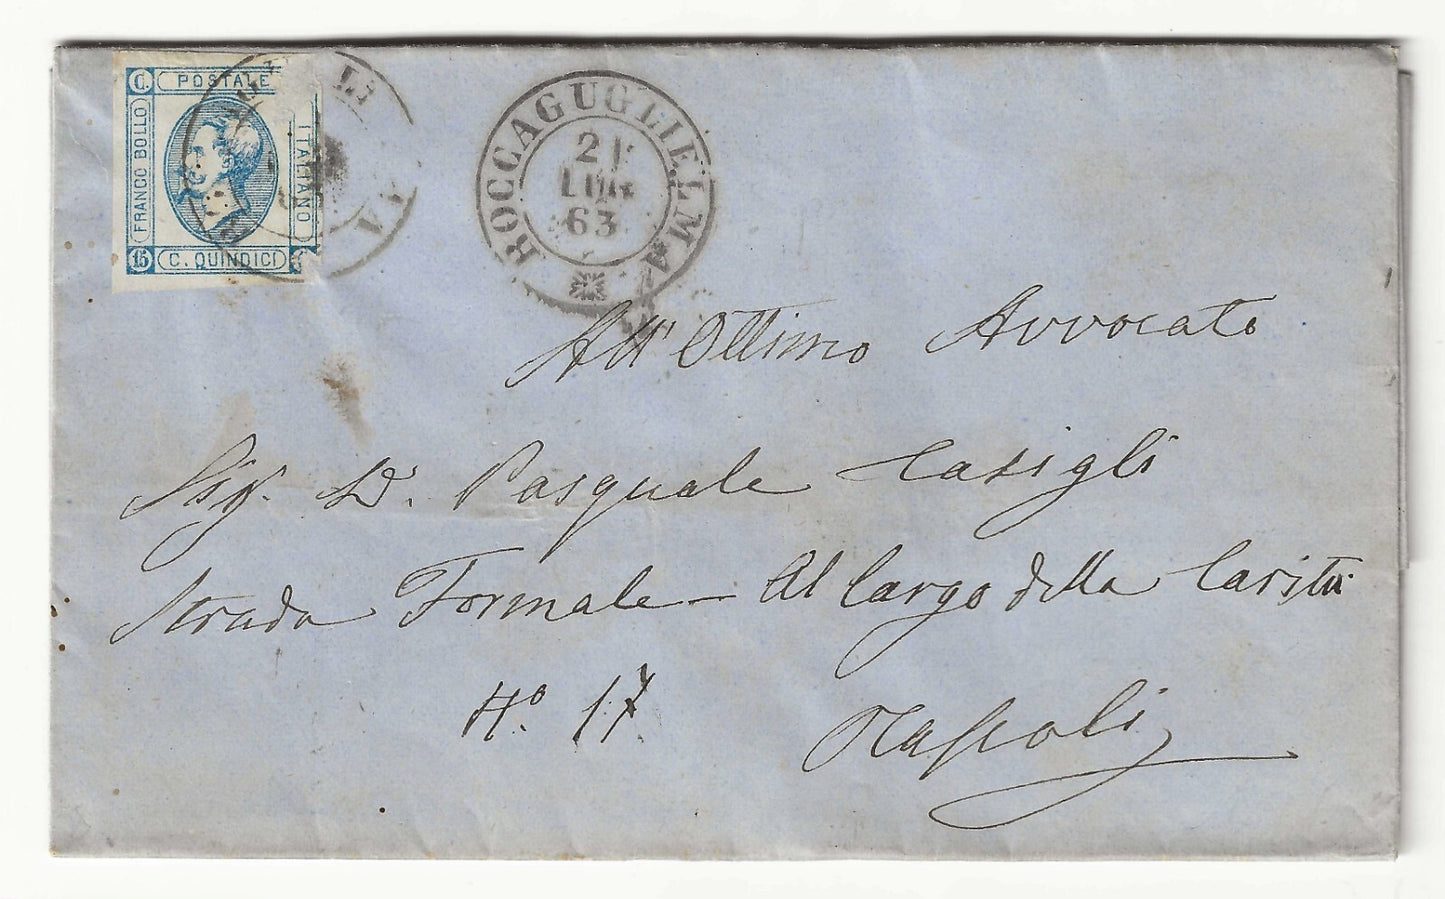 C. POSTALE
FRANCO BOLLO
ITALIANO
15 C. QUINDICI
ROCCAGUGLIELMA
21
LUG
63
All' Ottimo Avvocato
Sigr. D. Pasquale Casigli
Strada Formale - Al Largo della Carità
N.° 17
Napoli